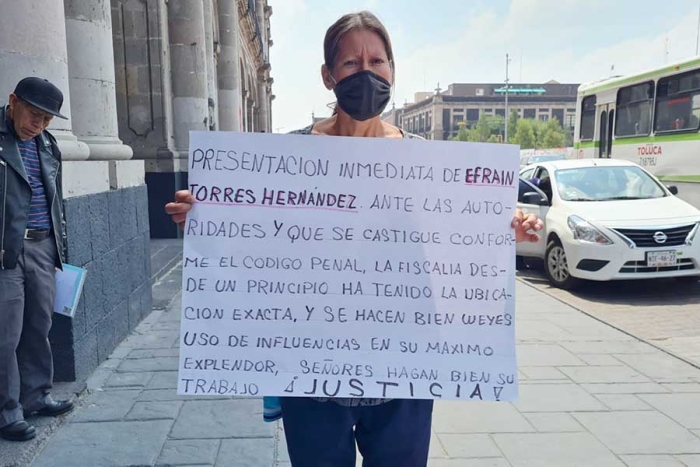 PRESENTACION INMEDIATA DE EFRAIN
TORRES HERNÁNDEZ. ANTE LAS AUTO-
RIDADES Y QUE SE CASTIGUE CONFOR-
ME EL CODIGO PENAL, LA FISCALIA DES-
DE UN PRINCIPIO HA TENIDO LA UBICA-
CION EXACTA, Y SE HACEN BIEN WEYES
USO DE INFLUENCIAS EN SU MAXIMO
EXPLENDOR, SEÑORES HAGAN BIEN SU
TRABAJO ¡JUSTICIA!
TOLUCA